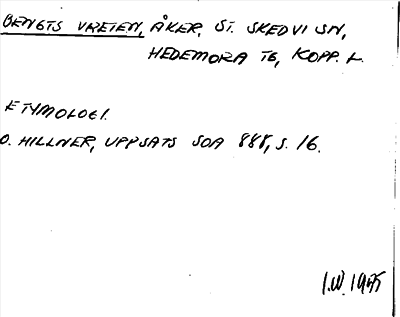 BENGTS VRETEN, ÅKER, ST. SKEDVI SN,
HEDEMORA TG, KOPP. L.
ETYMOLOGI.
O. HILLNER, UPPSATS SOA 888, S. 16.
I.W. 1975